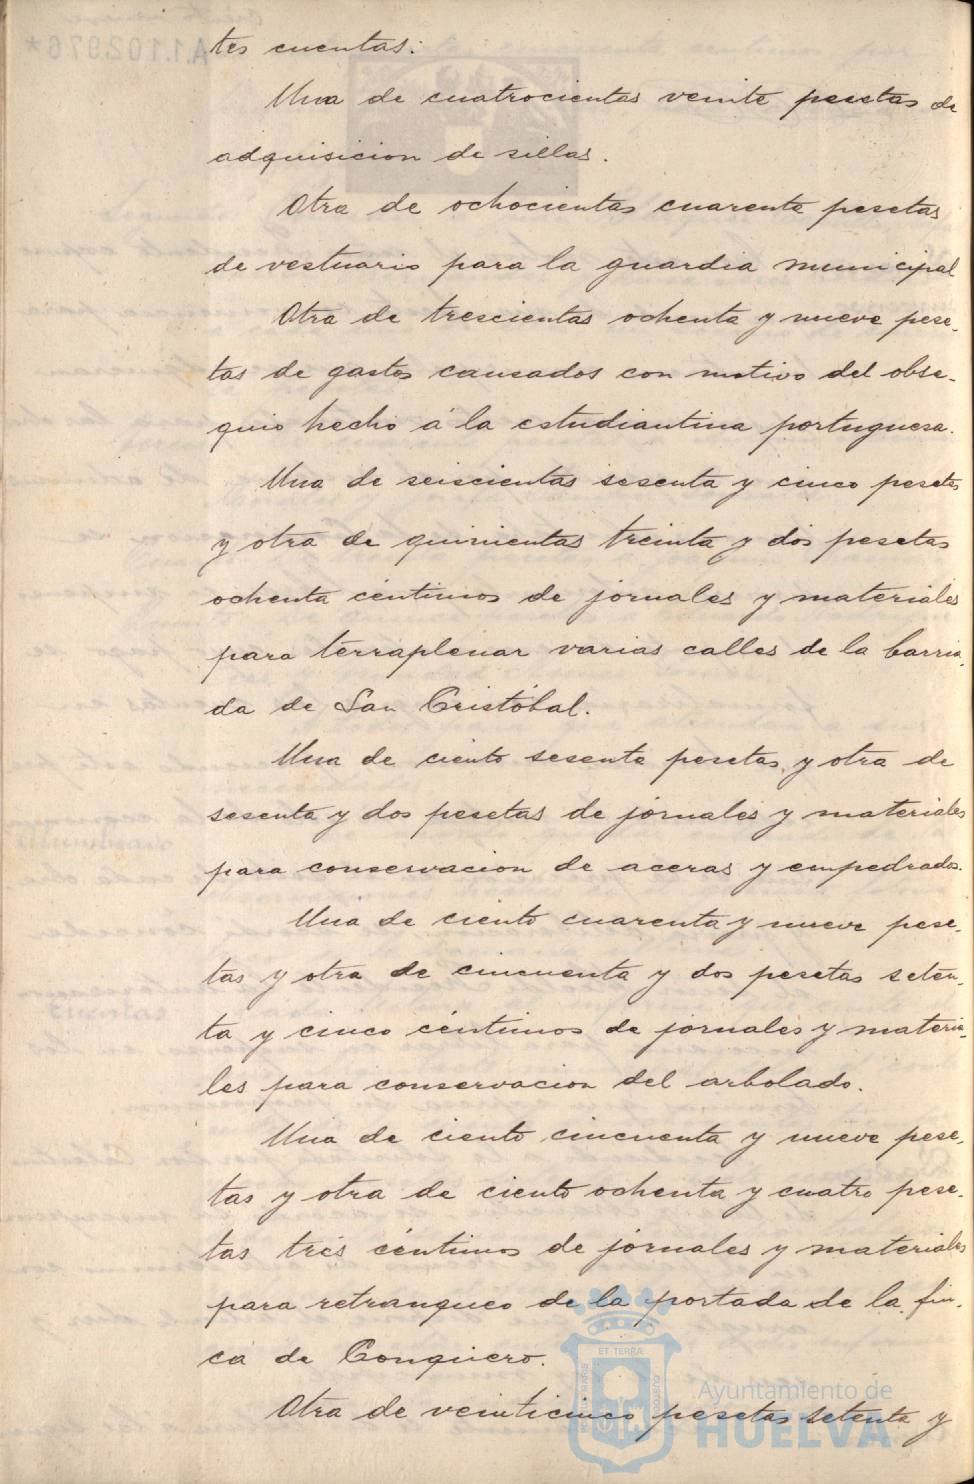 tes cuentas:
Una de cuatrocientas veinte pesetas de
adquisicion de sillas.
Otra de ochocientas cuarenta pesetas
de vestuario para la guardia municipal
Otra de trescientas ochenta y nueve pese-
tas de gastos causados con motivo del obse-
quio hecho á la estudiantina portuguesa.
Una de seiscientas sesenta y cinco pesetas
y otra de quinientas treinta y dos pesetas
ochenta céntimos de jornales y materiales
para terraplenar varias calles de la barria-
da de San Cristóbal.
Una de ciento sesenta pesetas y otra de
sesenta y dos pesetas de jornales y materiales
para conservacion de aceras y empedrados.
Una de ciento cuarenta y nueve pese-
tas y otra de cincuenta y dos pesetas seten-
ta y cinco céntimos de jornales y materia-
les para conservacion del arbolado.
Una de ciento cincuenta y nueve pese-
tas y otra de ciento ochenta y cuatro pese-
tas tres céntimos de jornales y materiales
para retranqueo de la portada de la fin-
ca de Conquero.
Otra de veinticinco pesetas setenta y
ET TERRÆ
Ayuntamiento de
HUELVA